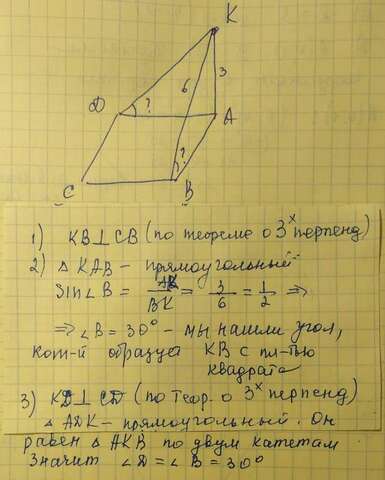 K
3
6
D
?
A
?
C
B
1) KB⊥CB (по теореме о 3х перпенд)
2) △ KAB – прямоугольный
Sin∠B = AK/BK = 3/6 = 1/2 ⇒
⇒ ∠B = 30° – мы нашли угол,
кот-й образует KB с пл-тью
квадрата
3) KD⊥CD (по теор. о 3х перпенд)
△ ADK – прямоугольный. Он
равен △ AKB по двум катетам
Значит ∠D = ∠B = 30°